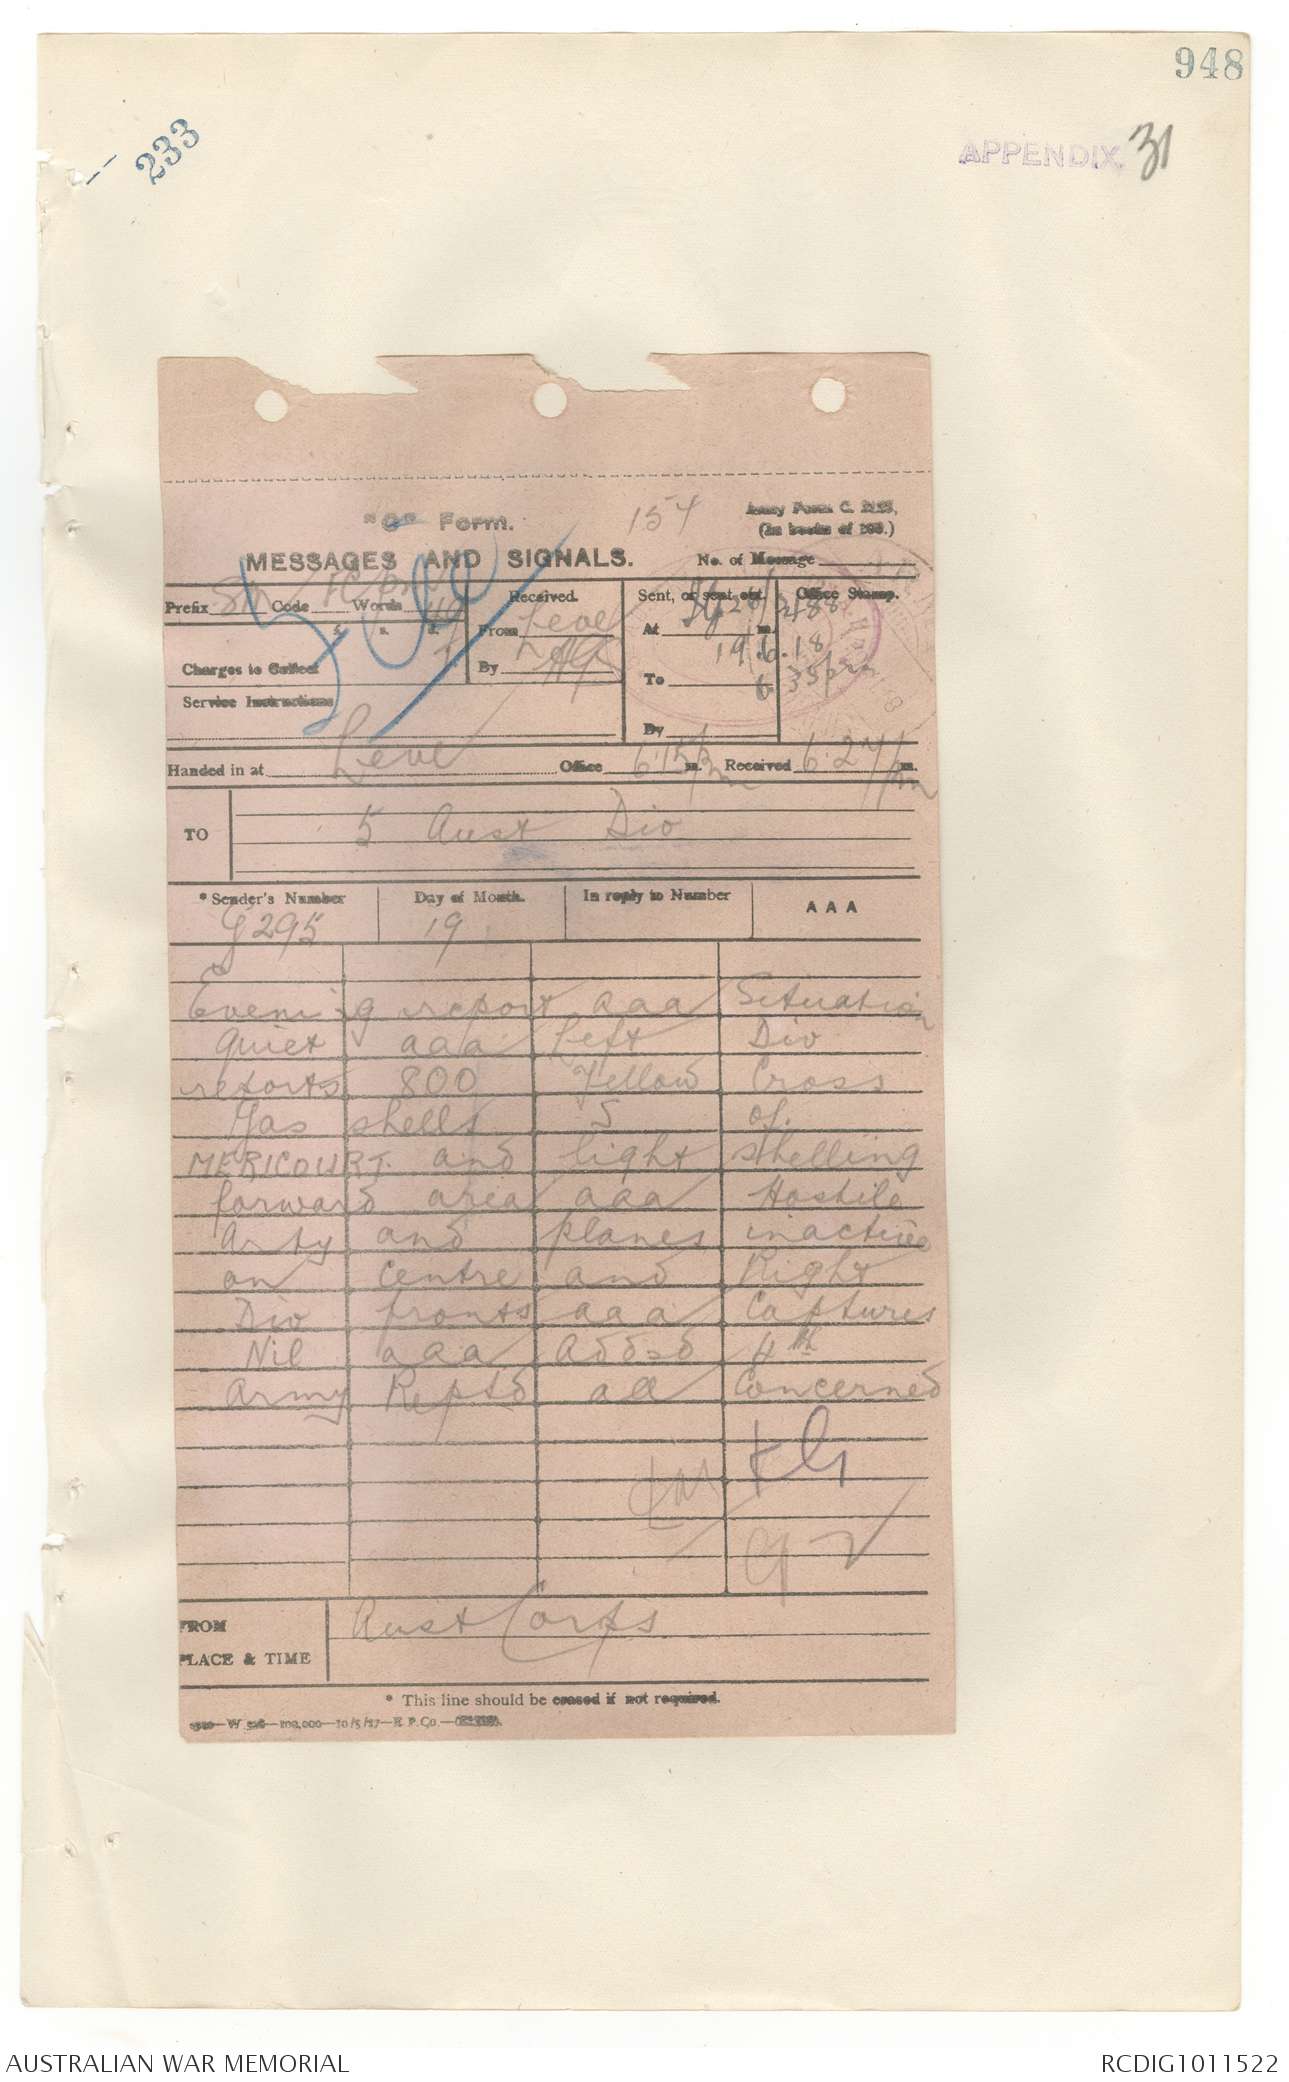 948
233
APPENDIX. 31
"C" Form.
154
Army Form C. 2123.
(In books of 100.)
MESSAGES AND SIGNALS.
No. of Message
Prefix Sm Code Words 49
Received.
Sent, or sent out.
Office Stamp.
£ s. d.
From Leve
At m.
19.6.18
Charges to Collect
By
To
6.35pm
Service Instructions
By
Handed in at Leve Office 6.15pm m. Received 6.27pm m.
TO 5 Aust Div
*Sender's Number
Day of Month.
In reply to Number
AAA
G295 19
Evening report aaa Situation
quiet aaa Left Div
reports 800 Yellow Cross
Gas shells S of
MERICOURT. and light shelling
forward area aaa Hostile
Arty and planes inactive
on centre and Right
Div fronts aaa Captures
Nil aaa Addsd 4th
Army Reptd all Concerned
FROM Aust Corps
PLACE & TIME
* This line should be erased if not required.
AUSTRALIAN WAR MEMORIAL
RCDIG1011522